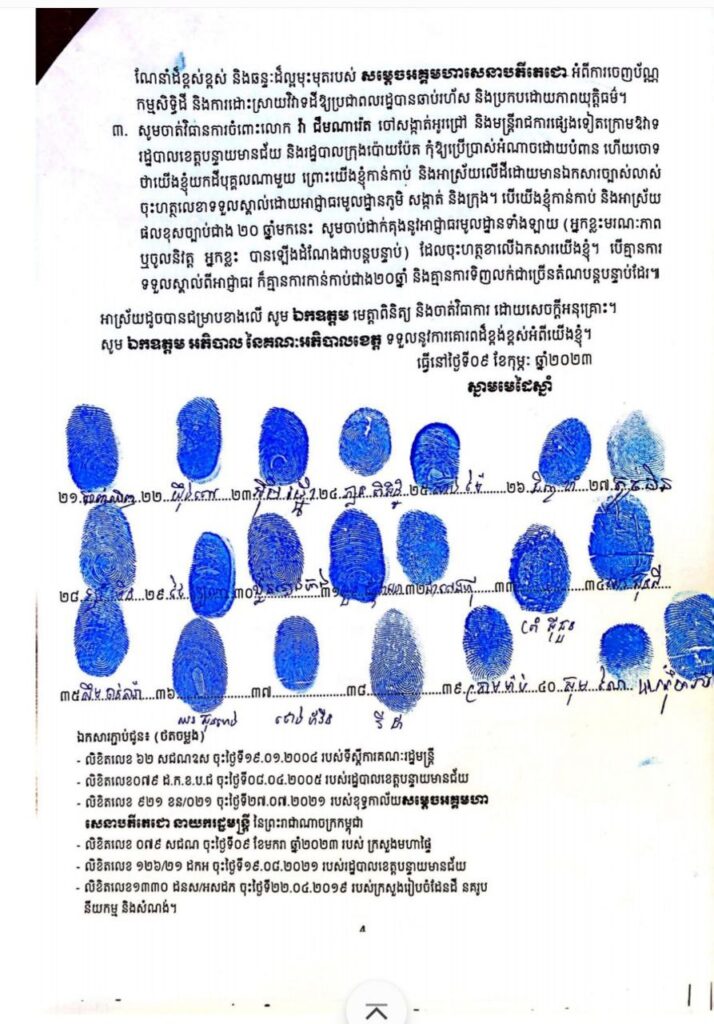 ណែនាំដ៏ខ្ពស់ខ្ពស់ និងឆន្ទៈដ៏ល្អមុះមុតរបស់ សម្តេចអគ្គមហាសេនាបតីតេជោ អំពីការចេញប័ណ្ណ
កម្មសិទ្ធិដី និងការដោះស្រាយវិវាទដីឱ្យប្រជាពលរដ្ឋបានឆាប់រហ័ស និងប្រកបដោយភាពយុត្តិធម៌។
៣. សូមចាត់វិធានការចំពោះលោក វ៉ា ជឹមណារ៉េត ចៅសង្កាត់អូរជ្រៅ និងមន្ត្រីរាជការផ្សេងទៀតក្រោមឱវាទ
រដ្ឋបាលខេត្តបន្ទាយមានជ័យ និងរដ្ឋបាលក្រុងប៉ោយប៉ែត កុំឱ្យប្រើប្រាស់អំណាចដោយបំពាន ហើយចោទ
ថាយើងខ្ញុំយកដីបុគ្គលណាមួយ ព្រោះយើងខ្ញុំកាន់កាប់ និងអាស្រ័យលើដីដោយមានឯកសារច្បាស់លាស់
ចុះហត្ថលេខាទទួលស្គាល់ដោយអាជ្ញាធរមូលដ្ឋានភូមិ សង្កាត់ និងក្រុង។ បើយើងខ្ញុំកាន់កាប់ និងអាស្រ័យ
ផលខុសច្បាប់ជាង ២០ ឆ្នាំមកនេះ សូមចាប់ដាក់គុងនូវអាជ្ញាធរមូលដ្ឋានទាំងឡាយ (អ្នកខ្លះមរណៈភាព
ឬចូលនិវត្ត អ្នកខ្លះ បានឡើងដំណែងជាបន្តបន្ទាប់) ដែលចុះហត្ថខាលើឯកសារយើងខ្ញុំ។ បើគ្មានការ
ទទួលស្គាល់ពីអាជ្ញាធរ ក៏គ្មានការកាន់កាប់ជាង២០ឆ្នាំ និងគ្មានការទិញលក់ជាច្រើនតំណបន្តបន្ទាប់ដែរ៕
អាស្រ័យដូចបានជម្រាបខាងលើ សូម ឯកឧត្តម មេត្តាពិនិត្យ និងចាត់វិធាការ ដោយសេចក្តីអនុគ្រោះ។
សូម ឯកឧត្តម អភិបាល នៃគណៈអភិបាលខេត្ត ទទួលនូវការគោរពដ៏ខ្ពង់ខ្ពស់អំពីយើងខ្ញុំ។
ធ្វើនៅថ្ងៃទី០៩ ខែកុម្ភៈ ឆ្នាំ២០២៣
ស្នាមមេដៃស្តាំ
២១. ២២. ២៣ ២៤. ២៥. ២៦. ២៧.
២៨. ២៩. ៣០ ៣១ ៣២ ៣៣ ៣៤
៣៥ ៣៦ ៣៧ ៣៨ ៣៩. ៤០.
ឯកសារភ្ជាប់ជូន៖ (ថតចម្លង)
- លិខិតលេខ ៦២ សជណខស ចុះថ្ងៃទី១៩.០១.២០០៤ របស់ទីស្តីការគណៈរដ្ឋមន្ត្រី
- លិខិតលេខ០៧៩ ដ.ក.ខ.ប.ជ ចុះថ្ងៃទី០៨.០៤.២០០៥ របស់រដ្ឋបាលខេត្តបន្ទាយមានជ័យ
- លិខិតលេខ ៩២១ ខន/០២១ ចុះថ្ងៃទី២៧.០៧.២០២១ របស់ខុទ្ទកាល័យសម្តេចអគ្គមហា
សេនាបតីតេជោ នាយករដ្ឋមន្ត្រី នៃព្រះរាជាណាចក្រកម្ពុជា
- លិខិតលេខ ០៧៩ សជណ ចុះថ្ងៃទី០៩ ខែមករា ឆ្នាំ២០២៣ របស់ ក្រសួងមហាផ្ទៃ
- លិខិតលេខ ១២៦/២១ ដកអ ចុះថ្ងៃទី១៩.០៨.២០២១ របស់រដ្ឋបាលខេត្តបន្ទាយមានជ័យ
- លិខិតលេខ១៣៣០ ដនស/អសដភ ចុះថ្ងៃទី២២.០៤.២០១៩ របស់ក្រសួងរៀបចំដែនដី នគរូប
នីយកម្ម និងសំណង់។
4